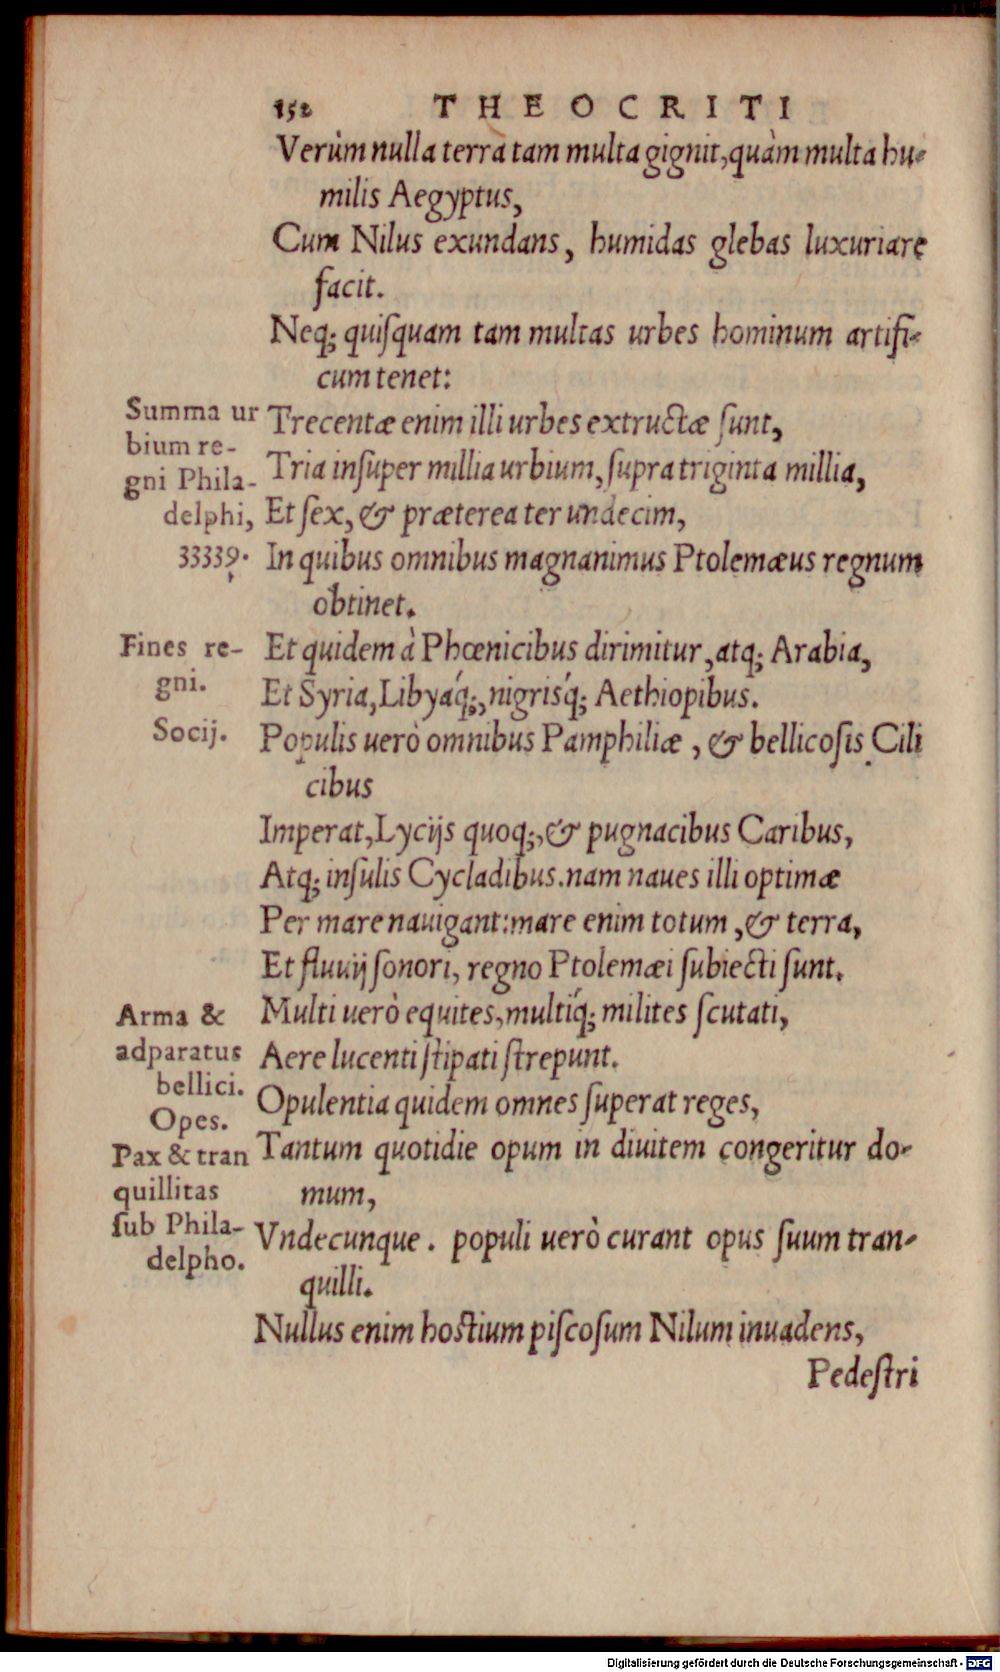 152 THEOCRITI
Verùm nulla terra tam multa gignit, quàm multa hu-
milis Aegyptus,
Cum Nilus exundans, humidas glebas luxuriare
facit.
Neq; quiſquam tam multas urbes hominum artifi-
cum tenet:
Summa ur
bium re-
gni Phila-
delphi,
33339.
Trecentæ enim illi urbes extructæ ſunt,
Tria inſuper millia urbium, ſupra triginta millia,
Et ſex, & præterea ter undecim,
In quibus omnibus magnanimus Ptolemæus regnum
obtinet.
Fines re-
gni.
Et quidem à Phœnicibus dirimitur, atq; Arabia,
Et Syria, Libyáq;, nigriśq; Aethiopibus.
Socij.
Populis uerò omnibus Pamphiliæ, & bellicoſis Cili
cibus
Imperat, Lycijs quoq;, & pugnacibus Caribus,
Atq; inſulis Cycladibus. nam naues illi optimæ
Per mare nauigant: mare enim totum, & terra,
Et fluuij ſonori, regno Ptolemæi ſubiecti ſunt.
Arma &
adparatus
bellici.
Multi uerò equites, multíq; milites ſcutati,
Aere lucenti ſtipati ſtrepunt.
Opes.
Opulentia quidem omnes ſuperat reges,
Pax & tran
quillitas
ſub Phila-
delpho.
Tantum quotidie opum in diuitem congeritur do-
mum,
Vndecunque. populi uerò curant opus ſuum tran-
quilli.
Nullus enim hoſtium piſcoſum Nilum inuadens,
Pedeſtri
Digitalisierung gefördert durch die Deutsche Forschungsgemeinschaft - DFG